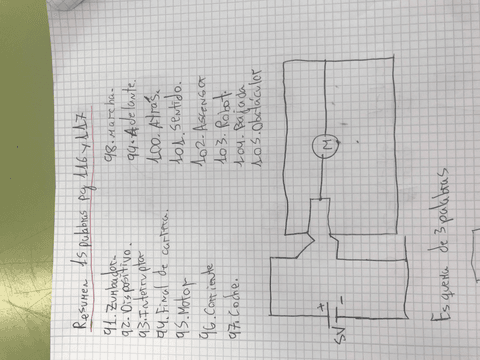 Resumen 15 palabras pg 116 y 117
91. Zumbador.
92. Dispositivo.
93. Interruptor
94. Final de carrera.
95. Motor
96. Corriente
97. Coche.
98. Marcha.
99. Adelante.
100. Atrás.
101. Sentido.
102. Ascensor
103. Robot.
104. Bajada
105. Obstáculos
+
-
5V
M
Esquema de 3 palabras